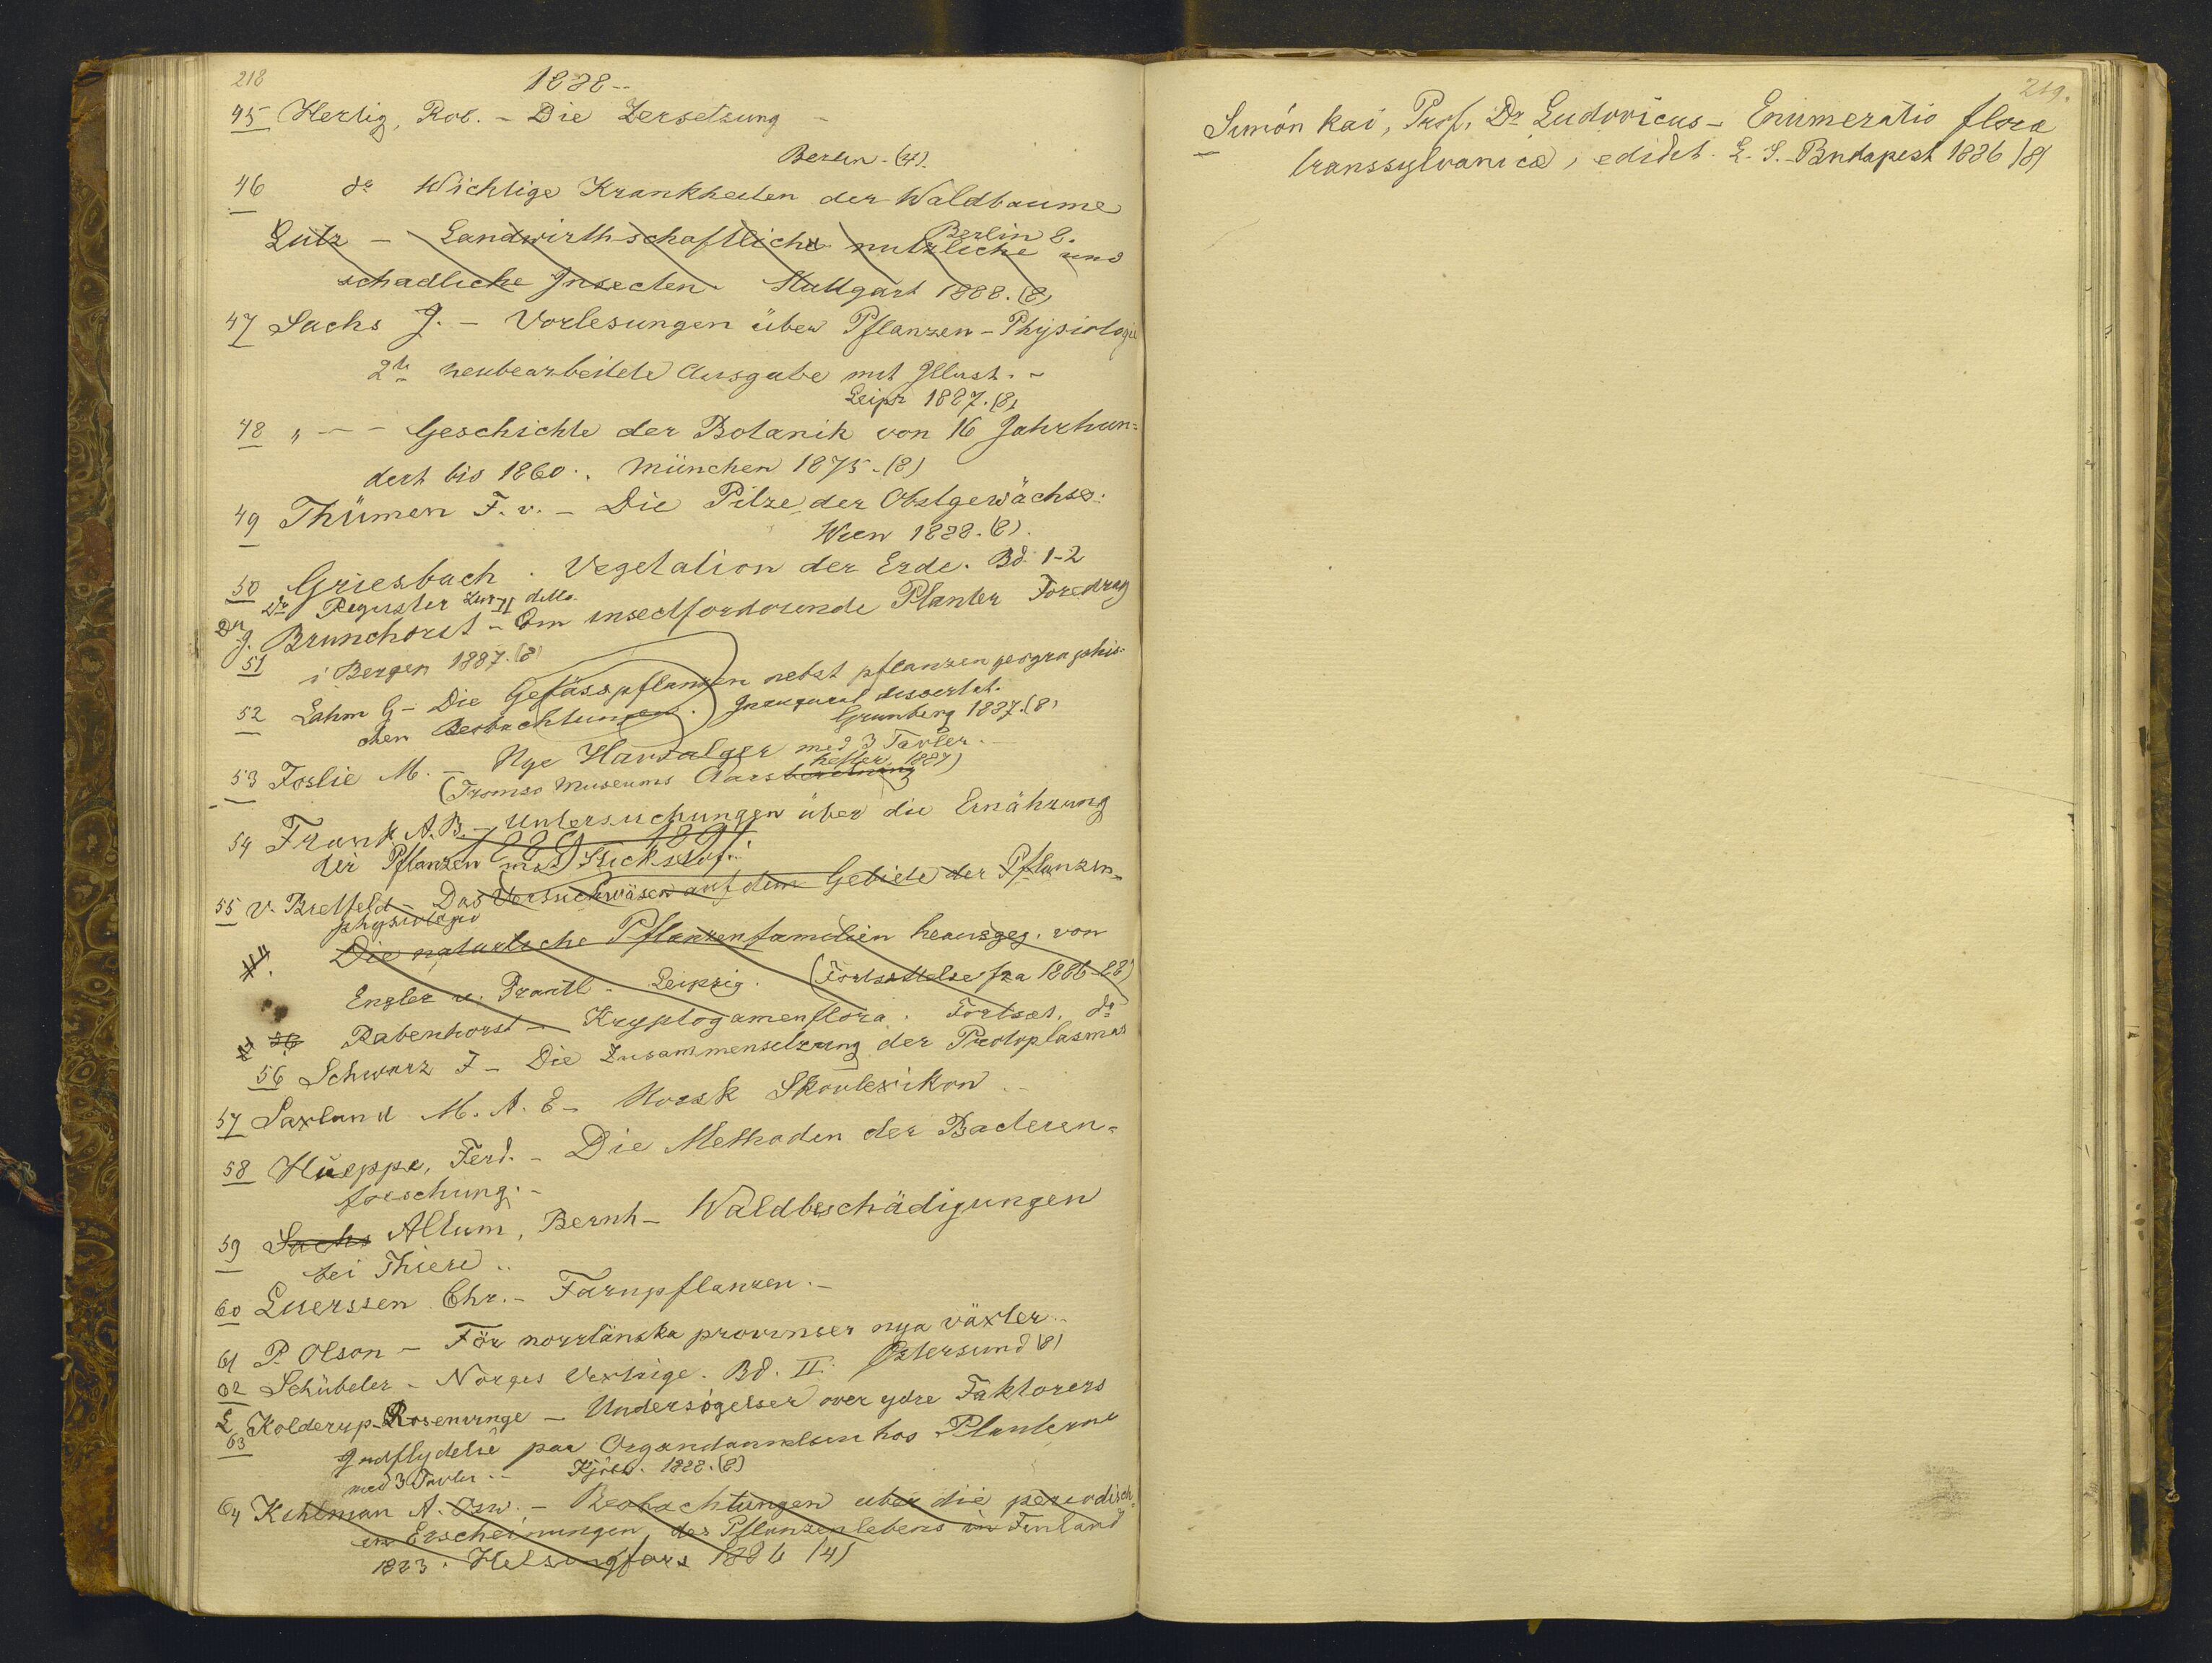 218
1888--
45 Hertig, Rob. - Die Zersetzung -
Berlin - (4).
46 do Wichtige Krankheiten der Waldbaume
Berlin 8.
Lutz - Landwirthschaftliche nutzliche und
schadliche Insecten. Stuttgart 1888. (8)
47 Sachs J. - Vorlesungen über Pflanzen-Physiologie
2te neubearbeitete Ausgabe mit Illust. -
Leipz 1887. (8)
48 " - - Geschichte der Botanik von 16 Jahrhun=
dert bis 1860. München 1875. (8)
49 Thümen F. v. - Die Pilze der Obstgewächse.
Wien 1888. (8).
50 Griesbach. Vegetation der Erde. Bd. 1-2
Do Register zur II ditto
Dr J. Brunchorst - Om insectfordoiende Planter Foredrag
51 i Bergen 1887. (8)
52 Lahm G - Die Gefässpflanzen nebst pflanzengeographis-
chen Beobachtungen. Inaugural dissertat.
Grunberg 1887. (8)
53 Foslie M. - Nye Havsalger med 3 Tavler. -
(Tromsø Museums Aarsberetning hefter 1887)
54 Frank A. B. - Untersuchungen über die Ernährung
der Pflanzen mit Stickstoff.
1889 1891
55 v. Bretfeld - Das Versuchwäsen auf dem Gebiete der Pflanzen-
physiologie
Die naturlische Pflanzenfamilien herausgeg. von
Engler u. Prantl - Leipzig. (Fortsættelse fra 1886-88)
56 Rabenhorst - Kryptogamenflora. Fortsæt. do
56 Schwarz F - Die Zusammensetzung der Protoplasmas
57 Saxlund M. A. E - Norsk Skovlexikon. -
58 Hueppe, Ferd. - Die Methoden der Bacterien=
forschung. -
59 Sachs Altum, Bernh - Waldbeschädigungen
bei Thiere ..
60 Luerssen Chr. - Farnpflanzen. -
61 P. Olson - För norrlänska provinser nya växter. -
Östersund (8)
62 Schübeler - Norges Vextrige. Bd. II.
L. Kolderup-Rosenvinge - Undersøgelser over ydre Faktorers
63 Indflydelse paa Organdannelsen hos Planterne
med 3 Tavler. - Kjöbh. 1888. (8)
64 Kihlman A. Osw. - Beobachtungen uber die periodisch-
en Erscheinungen des Pflanzenlebens in Finland
1883. Helsingfors 1886 (4)
219.
Simónkai, Prof. Dr Ludovicus - Enumeratio floræ
transsylvanicæ, edidit. L. S. - Budapest 1886 (8)